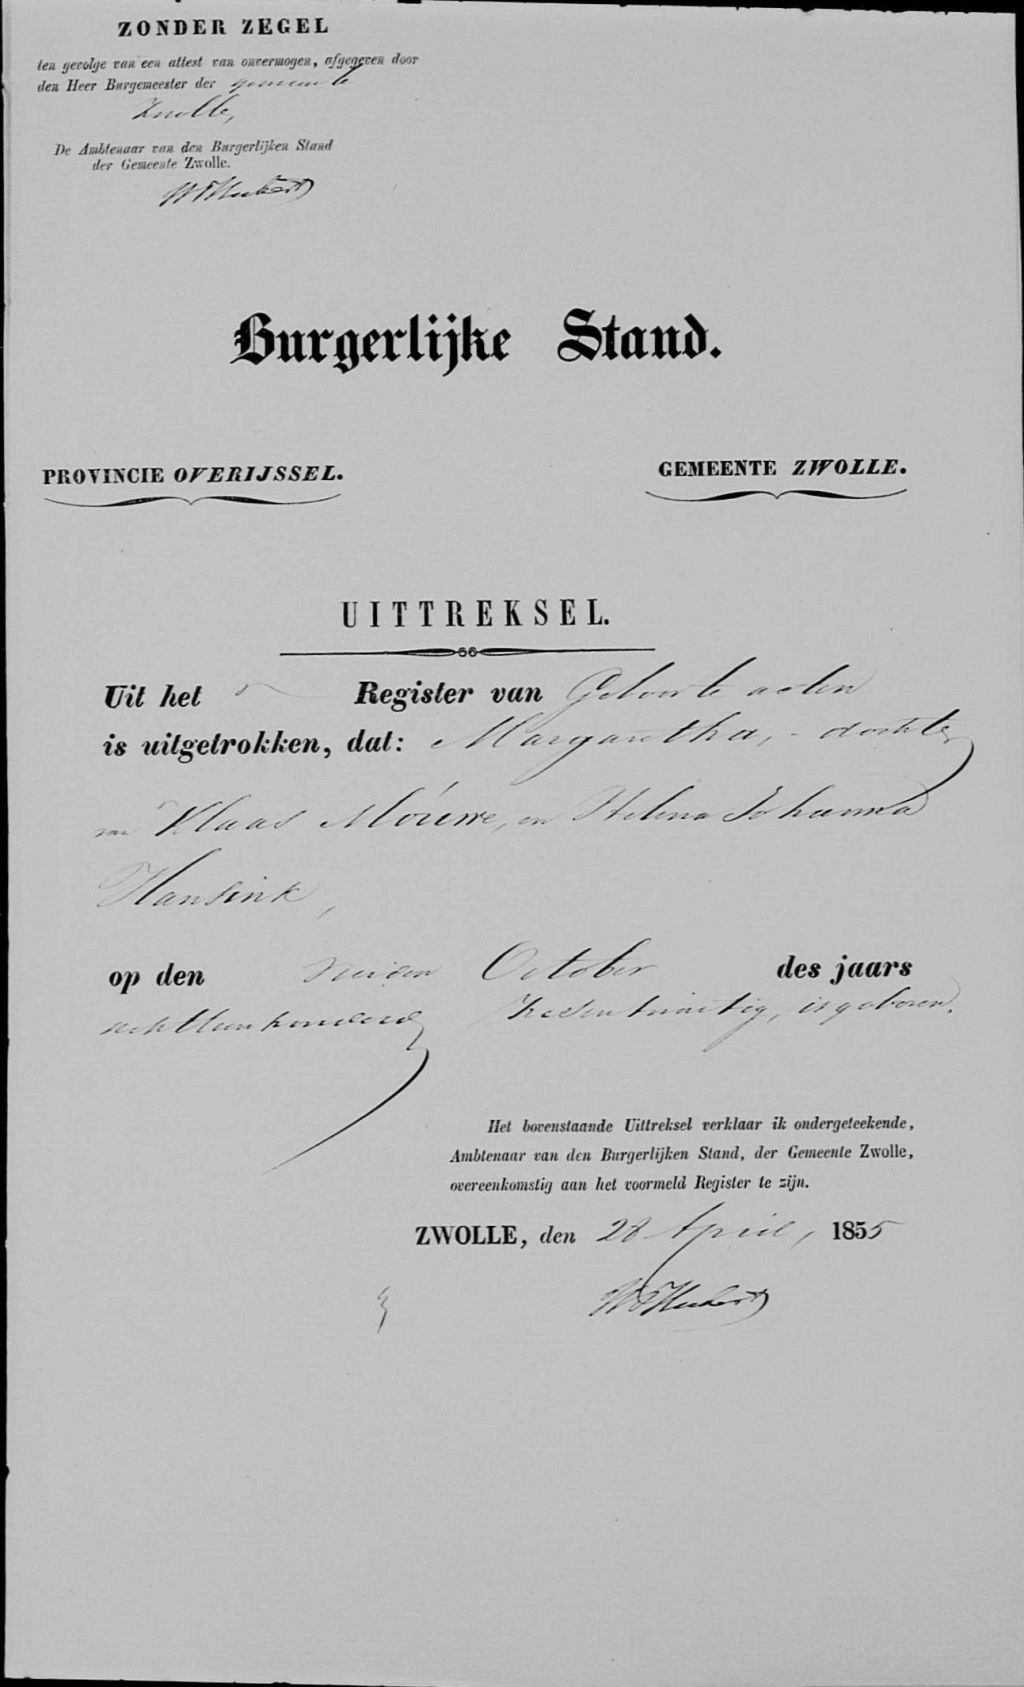 ZONDER ZEGEL
ten gevolge van een attest van onvermogen, afgegeven door
den Heer Burgemeester der gemeente
Zwolle,
De Ambtenaar van den Burgerlijken Stand
der Gemeente Zwolle.
Burgerlijke Stand.
PROVINCIE OVERIJSSEL.
GEMEENTE ZWOLLE.
UITTREKSEL.
Uit het Register van Geboorte acten
is uitgetrokken, dat: Margaretha, - dochter
van Klaas Mouwe, en Helena Johanna
Hansink,
op den October des jaars
achttienhonderd is geboren.
Het bovenstaande Uittreksel verklaar ik ondergeteekende,
Ambtenaar van den Burgerlijken Stand, der Gemeente Zwolle,
overeenkomstig aan het voormeld Register te zijn.
ZWOLLE, den 28 April, 1855